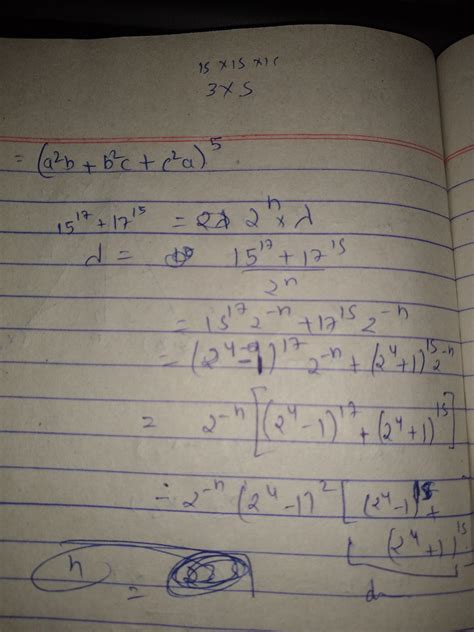 15 × 15 × 15
3 × 5
= (a²b + b²c + c²a)⁵
15¹⁷ + 17¹⁵ = 2ⁿ × λ
λ = (15¹⁷ + 17¹⁵) / 2ⁿ
= 15¹⁷ 2⁻ⁿ + 17¹⁵ 2⁻ⁿ
= (2⁴ - 1)¹⁷ 2⁻ⁿ + (2⁴ + 1)¹⁵ 2⁻ⁿ
= 2⁻ⁿ [(2⁴ - 1)¹⁷ + (2⁴ + 1)¹⁵]
= 2⁻ⁿ (2⁴ - 1)² [(2⁴ - 1)¹⁵ +
(2⁴ + 1)¹⁵]
n =